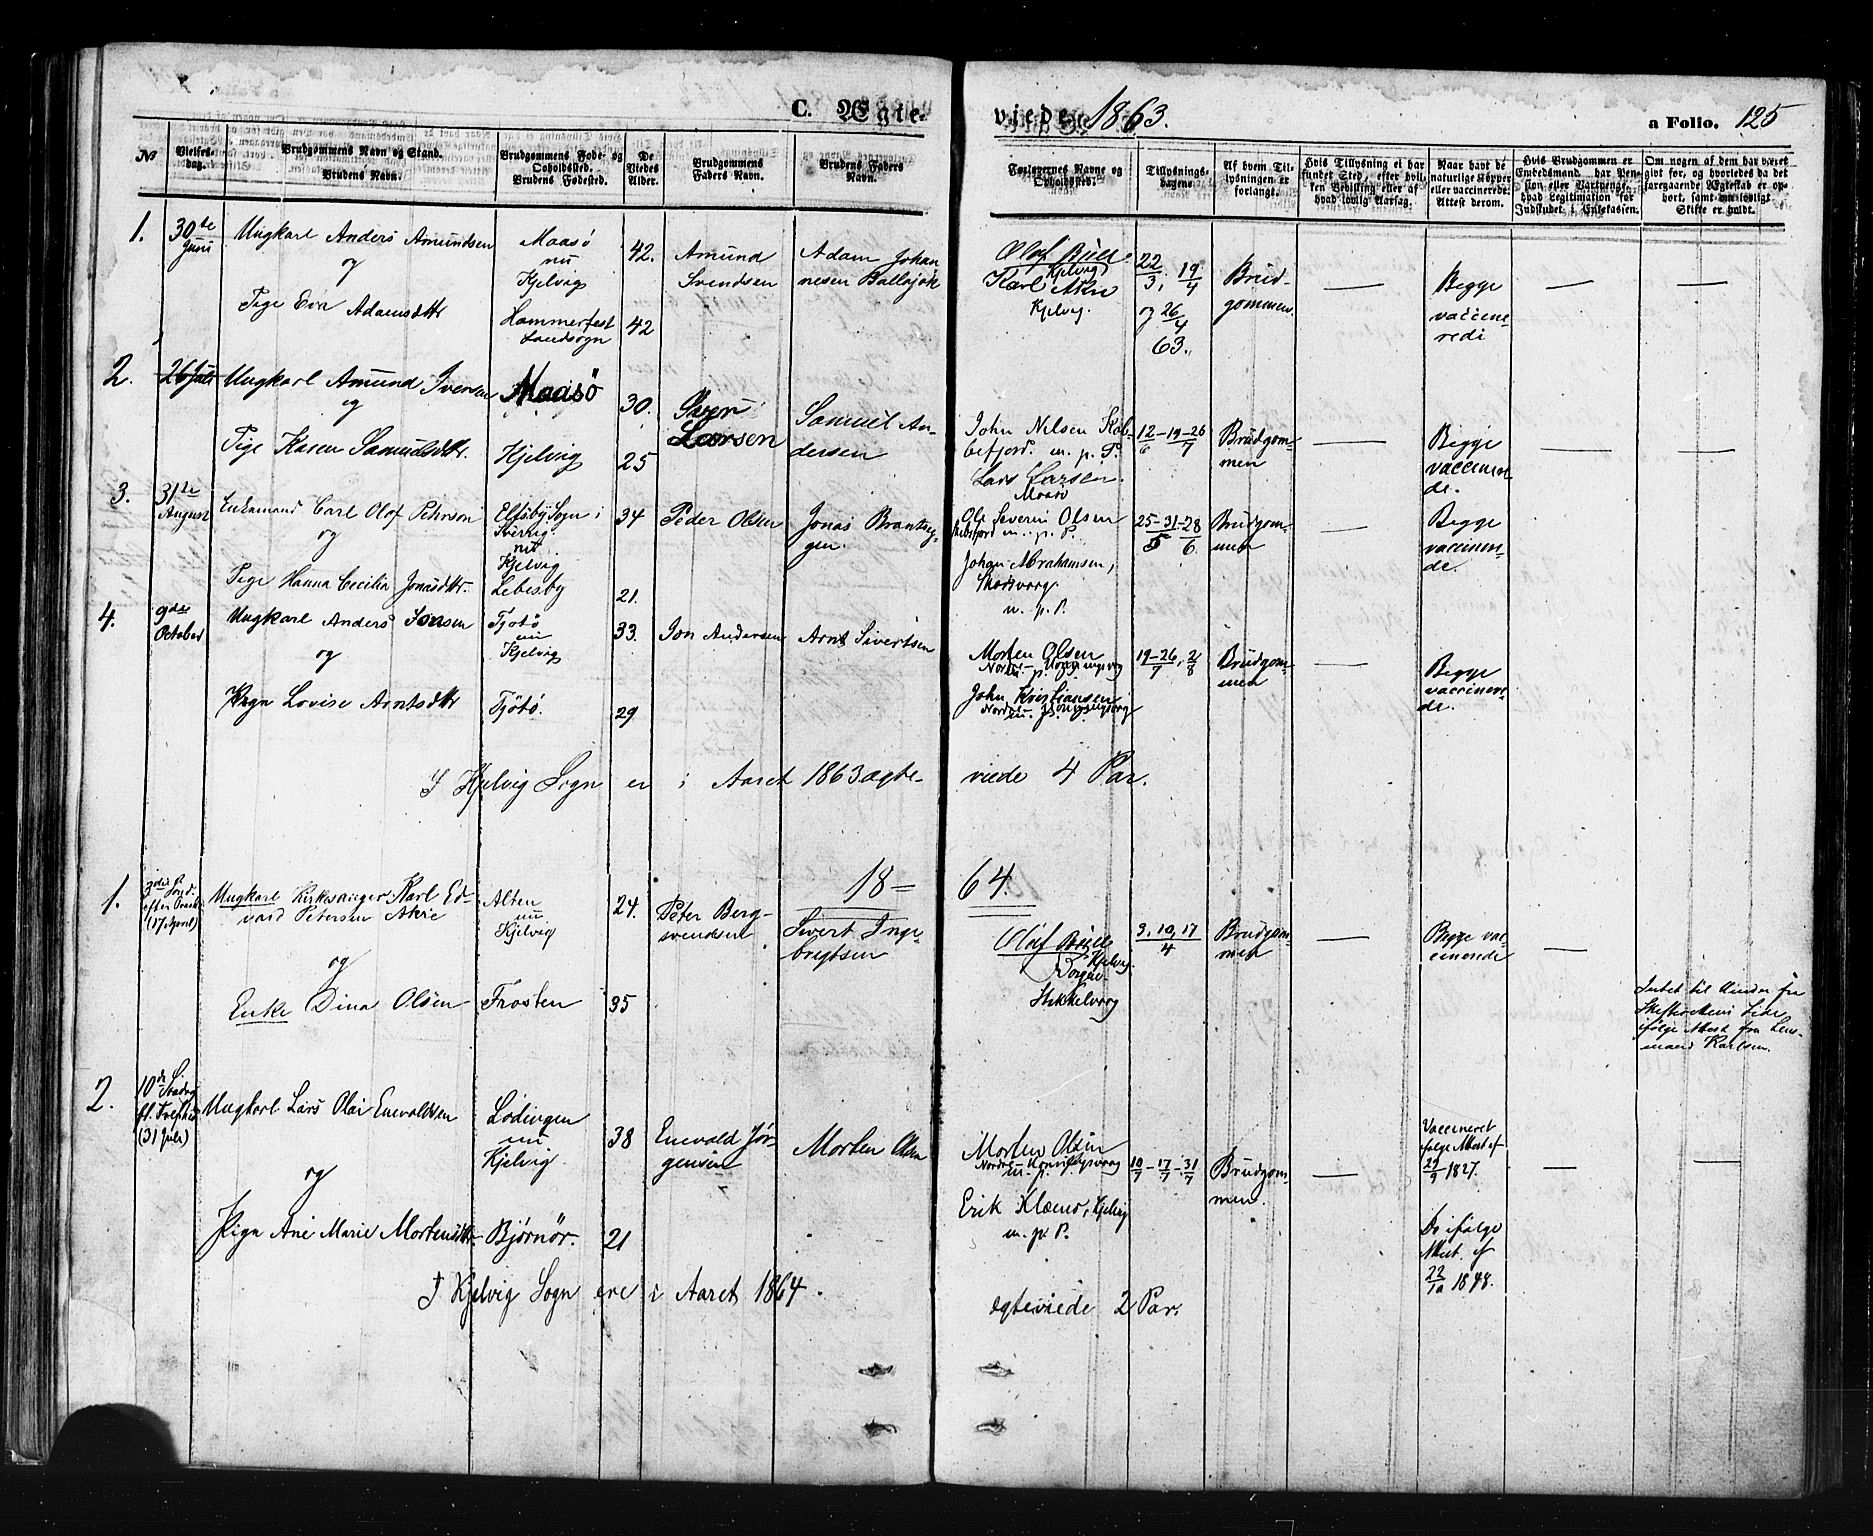 C. Ægte-
viede 1863.
a Folio. 125
No
Vielses-
dag.
Brudgommens Navn og Stand.
Brudens Navn.
Brudgommens Føde- og
Opholdssted.
Brudens Fødested.
De
Viedes
Alder.
Brudgommens
Faders Navn.
Brudens Faders
Navn.
Forlovernes Navne og
Opholdssted.
Tillysnings-
dagene
Af hvem Til-
lysningen er
forlangt.
Hvis Tillysning ei har
fundet Sted, efter hvil-
ken Bevilling eller af
hvad lovlig Aarsag.
Naar havt de
naturlige Kopper
eller vaccinerede.
Attest derom.
Hvis Brudgommen er
Embedsmand, har Pen-
sion eller Vartpenge,
hvad Legitimation for
Indskudet i Enkekassen.
Om nogen af dem har været
givt før, og hvorledes da det
foregaaende Ægteskab er op-
hørt, samt om lovligt
Skifte er holdt.
1.
30te
Juni
Ungkarl Anders Amundsen
og
Pige Eva Adamsdttr
Maasö
nu
Kjelvig
Hammerfest
Landsogn
42.
42
Amund
Svendsen
Adam Johan
nesen Ballojok
Olaf Büll
Kjelvig
Karl Akre
Kjelvig.
22/3, 19/4
og 26/4
63.
Brud-
gommen
Begge
vaccine-
rede
2.
26 Juli
Ungkarl Amund Iversen
og
Pige Karen Samuelsdttr.
Maasö
Kjelvig
30.
25
Iver
Larsen
Samuel An-
dersen
John Nilsen Kob-
befjord. m. p. P.
Lars Larsen
Maasö
12/6-19-26/7
Brudgom-
men
Begge
vaccinere
de.
3.
31te
August
Enkemand Carl Olof Pehrson
og
Pige Hanna Cecilia Jonasdttr.
Elfsby Sogn i
Sverrig
nu
Kjelvig
Lebesby
34
21.
Peder Olsen
Jonas Brantseg-
gen.
Ole Severin Olsen
m. p. P.
Johan Abrahamsen,
Skarsvaag
m. p. P.
25-31/5-28/6
Brudgom-
men
Begge
vaccinere-
de.
4.
9de
October
Ungkarl Anders Jonsen
og
Pigen Lovise Arntsdttr
Tjötö
nu
Kjelvig
Tjötö.
33.
29
Jon Andersen
Arnt Sivertsen
Morten Olsen
Nordre Honningsvaag
m. p. P.
John Kristiansen
Nordre Honningsvaag
m. p. P.
19-26/7, 2/8
Brudgom-
men
Begge
vaccinere-
de.
I Kjelvig Sogn er i Aaret 1863 ægte-
viede 4 Par.
18-
64.
1.
3die Sønd.
efter Paaske
(17 April)
Ungkarl Kirkesanger Karl Ed-
vard Petersen Akre
og
Enke Dina Olsen
Alten
nu
Kjelvig
Frosten
24.
35
Peter Berg-
svendsen
Sivert Inge-
brigtsen
Olaf Büll
Kjelvig.
Stikkelvaag
3, 10, 17/4
Brudgom-
men
Begge vac-
cinerede
Intet til Hinder fra
Skifterettens Side
ifølge Attest fra Lens-
mand Karlsen.
2.
10de S.
(31 Juli)
Ungkarl Lars Olai Enevaldsen
og
Pigen Ane Marie Mortensdttr
Lødingen
nu
Kjelvig
Bjørnör.
38
21
Enevald Jör-
gensen
Morten Olsen
Morten Olsen
Nordre Honningsvaag
m. p. P.
Erik Klæmo, Kjelvig
m. p. P.
10/7-17/7-31/7
Brudgom-
men.
Vaccineret
ifølge Attest af
29/9 1827.
Do ifølge
Attest af
22/10 1848.
I Kjelvig Sogn ere i Aaret 1864.
ægteviede 2 Par.